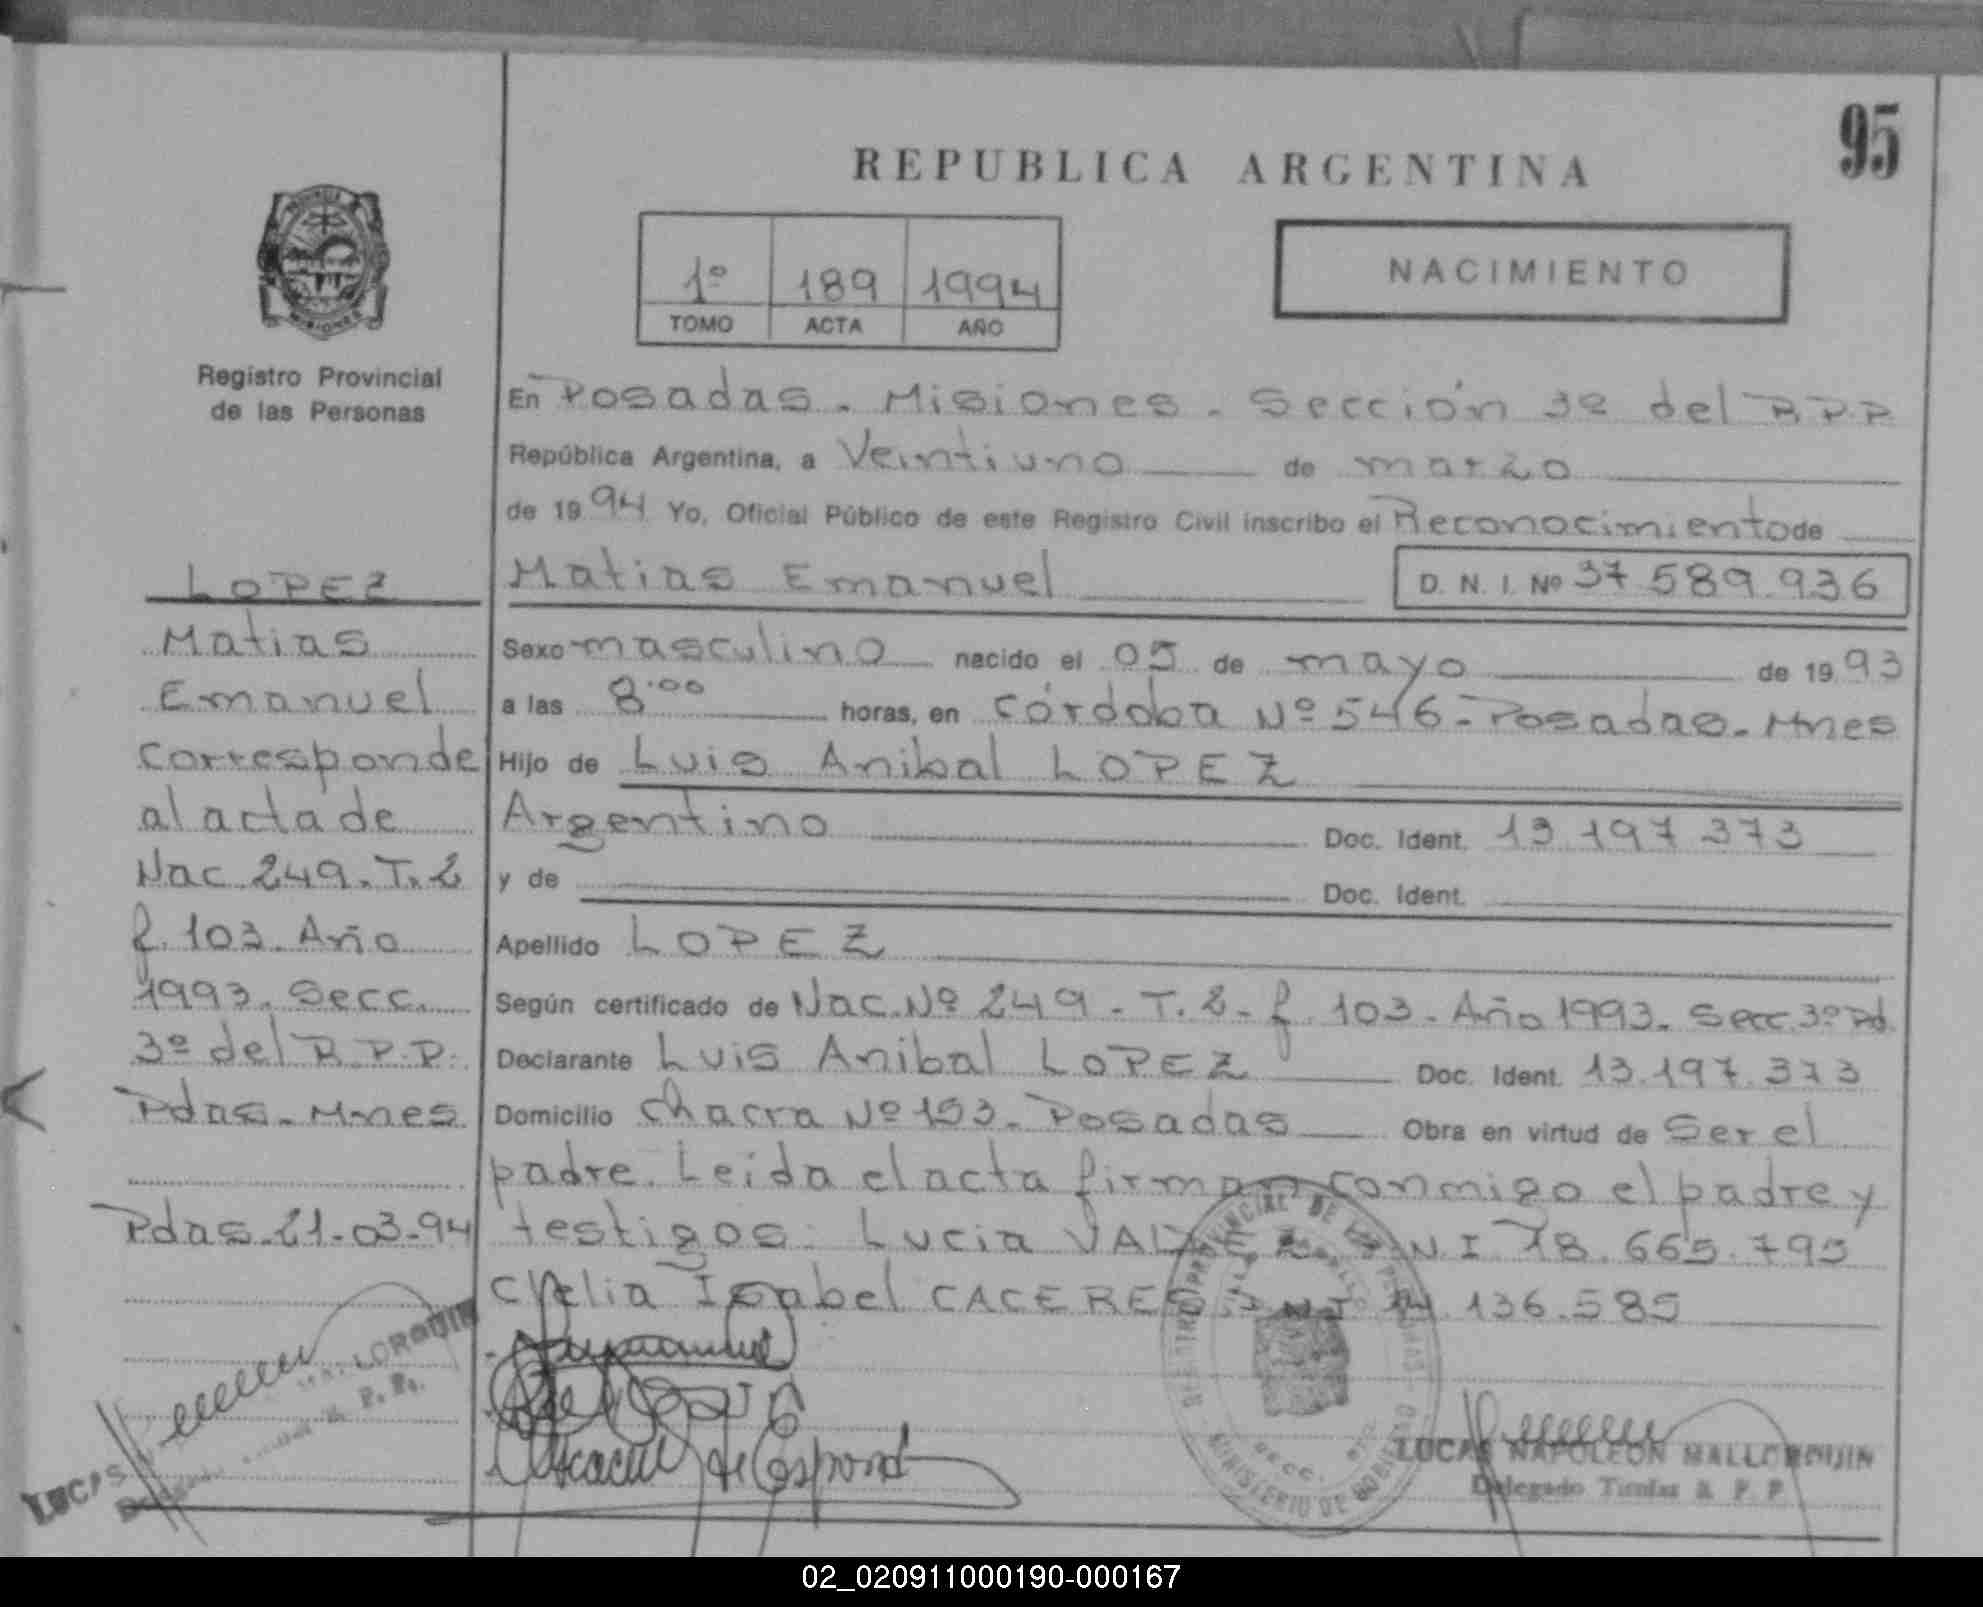 95
REPUBLICA ARGENTINA
1º 189 1994
TOMO ACTA AÑO
NACIMIENTO
PROVINCIA DE
MISIONES
Registro Provincial
de las Personas
En Posadas - Misiones - Sección 3º del R.P.P.
República Argentina, a Veintiuno de marzo
de 1994 Yo, Oficial Público de este Registro Civil inscribo el Reconocimiento de
Matias Emanuel D. N. I. Nº 37.589.936
Sexo masculino nacido el 05 de mayo de 1993
a las 8:00 horas, en Córdoba Nº 546 - Posadas - Mnes
Hijo de Luis Anibal LOPEZ
Argentino Doc. Ident. 13.197.373
y de Doc. Ident.
Apellido LOPEZ
Según certificado de Nac. Nº 249 - T. 2 - f. 103 - Año 1993. Secc. 3º Pd
Declarante Luis Anibal LOPEZ Doc. Ident. 13.197.373
Domicilio Chacra Nº 153 - Posadas Obra en virtud de Ser el
padre. Leida el acta firman conmigo el padre y
testigos: Lucia VALDEZ D.N.I 18.665.795
Clelia Isabel CACERES D.N.I 14.136.585
LOPEZ
Matias
Emanuel
Corresponde
al acta de
Nac. 249. T. 2
f. 103. Año
1993. Secc.
3º del R.P.P.
Pdas - Mnes
Pdas - 21-03-94
LUCAS
LORQUIN
REGISTRO PROVINCIAL DE LAS PERSONAS
SECC.
MINISTERIO DE GOBIERNO
LUCAS NAPOLEON MALLORQUIN
Delegado Titular R. P. P.
02_020911000190-000167